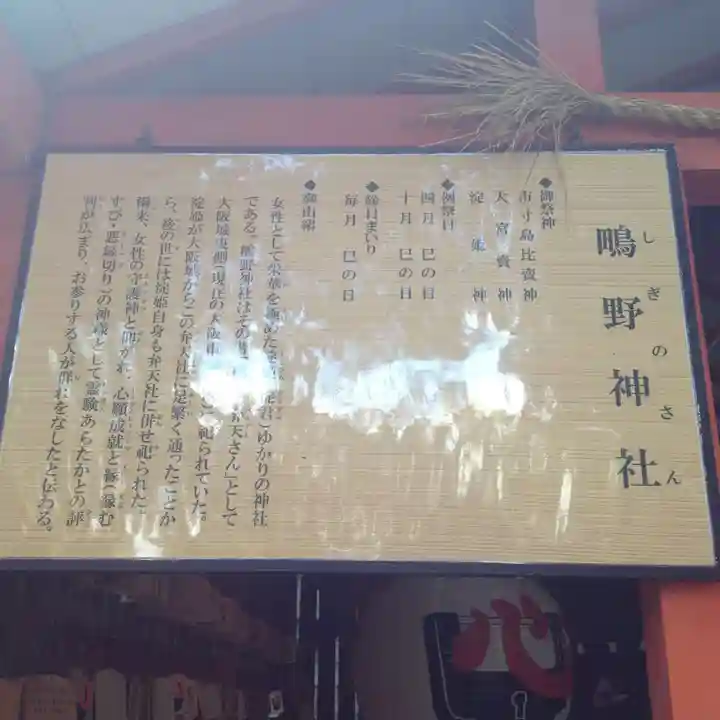 鴫野神社
しぎのさん
◆御祭神
市寸島比賣神
大宮賣神
淀姫神
◆例祭日
四月 巳の日
十月 巳の日
◆縁日まいり
毎月 巳の日
◆御由緒
女性として栄華を極めた ゆかりの神社
である。鴫野神社はその昔 天さん」として
大阪城東側(現在の大阪 祀られていた。
淀姫が大阪城からこの弁天社に足繁く通ったことか
ら、後の世には淀姫自身も弁天社に併せ祀られた。
爾来、女性の守護神と仰がれ、心願成就と縁(縁む
すび・悪縁切り)の神様として霊験あらたかとの評
判が広まり、お参りする人が群れをなしたと伝わる。
心